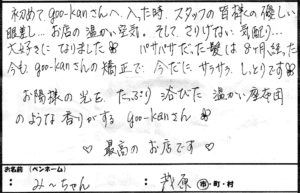 初めて goo-kanさんへ入った時、スタッフの皆様の優しい
眼差し…お店の温かい空気。そして、さりげない気配り…
大好きになりました パサパサだった髪は8ヶ月経った
今も goo-kanさんの矯正で、今だにサラサラ、しっとりです
お陽様の光を たっぷり浴びた 温かい座布団
のような香りがする goo-kanさん
♡ 最高のお店です ♡
お名前 (ペンネーム)
みーちゃん 芦原 市・町・村